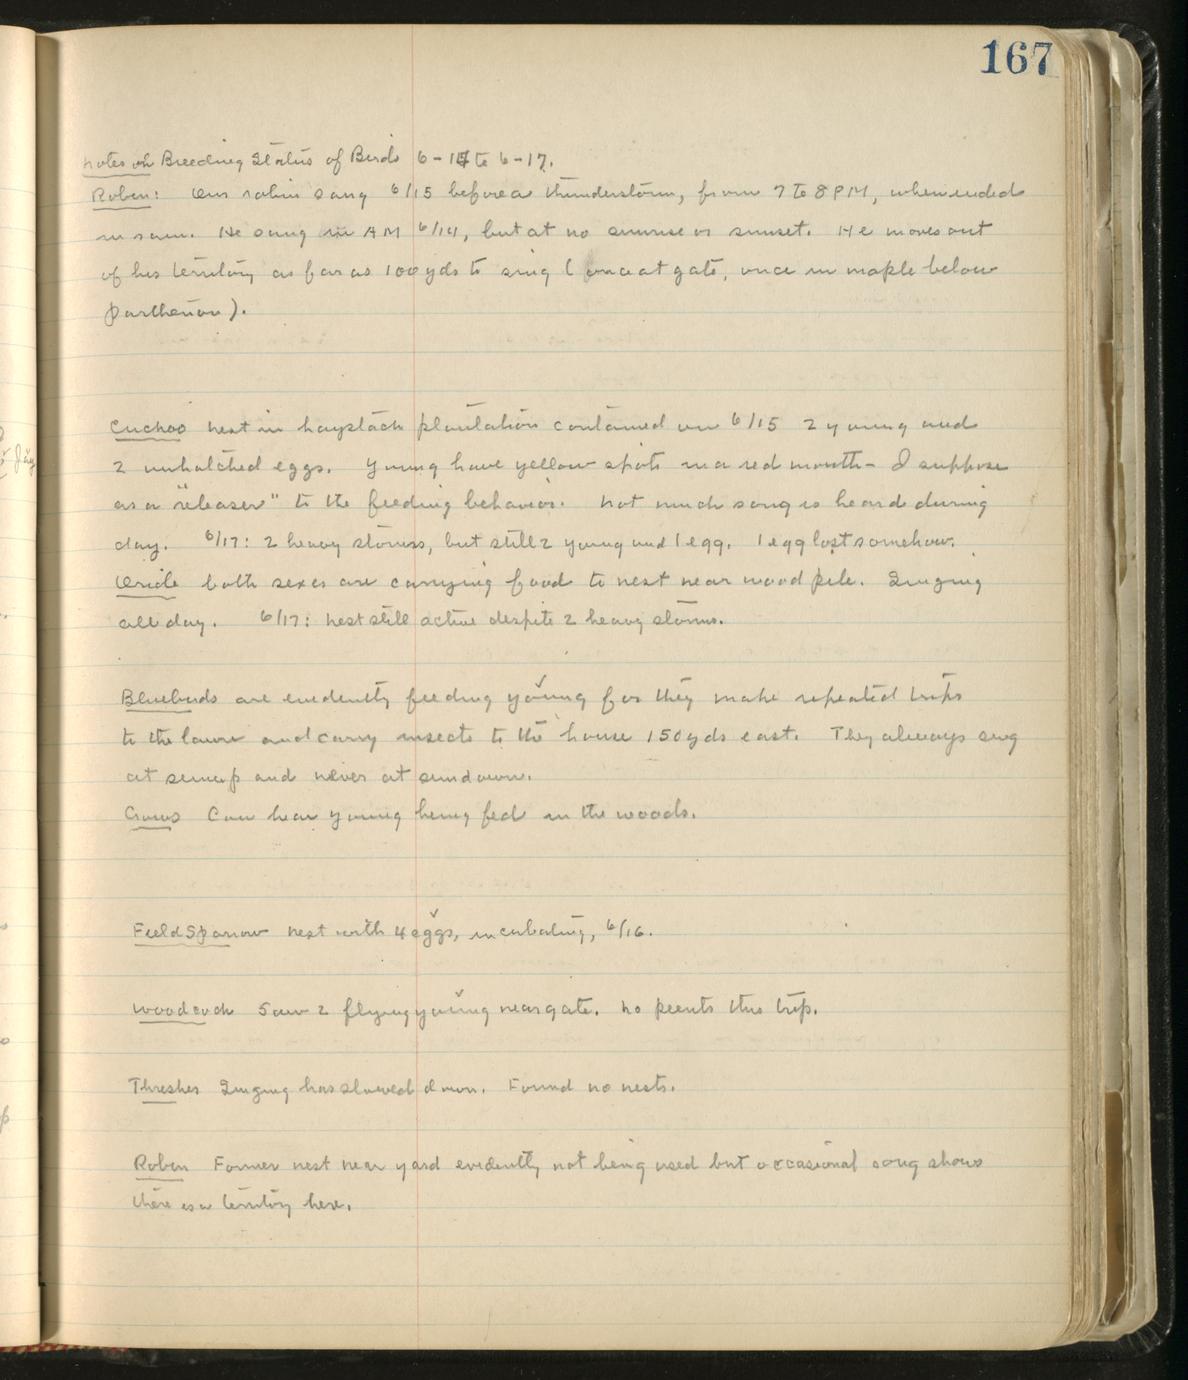 167
Notes on Breeding Status of Birds 6-14 to 6-17.
Robin: Our robin sang 6/15 before a thunderstorm, from 7 to 8 PM, when ended
in rain. He sang in AM 6/14, but at no sunrise or sunset. He moves out
of his territory as far as 100 yds to sing (once at gate, once in maple below
parthenon).
Cuckoo nest in haystack plantation contained on 6/15 2 young and
2 unhatched eggs. Young have yellow spots in a red mouth - I suppose
as a "releaser" to the feeding behavior. Not much song is heard during
day. 6/17: 2 heavy storms, but still 2 young and 1 egg. 1 egg lost somehow.
Oriole both sexes are carrying food to nest near wood pile. Singing
all day. 6/17: nest still active despite 2 heavy storms.
Bluebirds are evidently feeding young for they make repeated trips
to the lawn and carry insects to the house 150 yds east. They always sing
at sunup and never at sundown.
Crows Can hear young being fed in the woods.
Field Sparrow nest with 4 eggs, incubating, 6/16.
Woodcock Saw 2 flying young near gate. No peents this trip.
Thrasher Singing has slowed down. Found no nests.
Robin Former nest near yard evidently not being used but occasional song shows
there is a territory here.